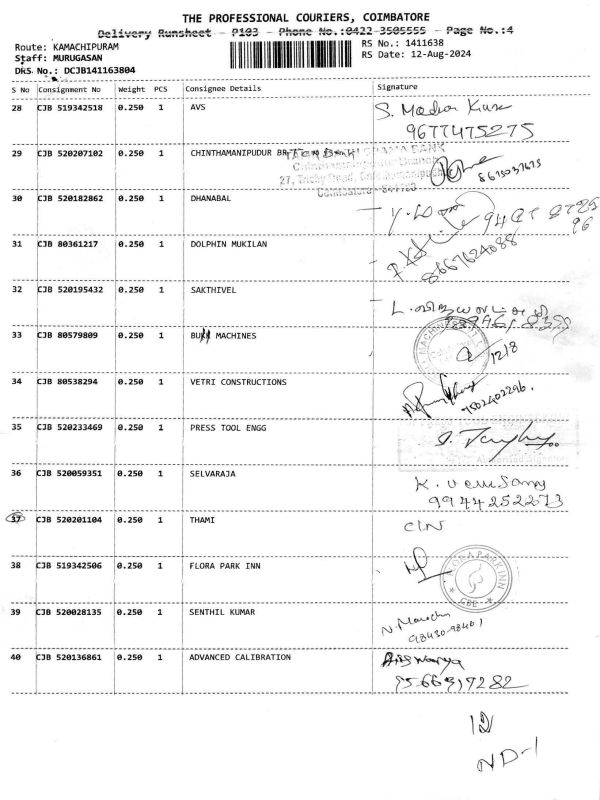 THE PROFESSIONAL COURIERS, COIMBATORE
Delivery Runsheet - P103 - Phone No.:0422-3505555 - Page No.:4
Route: KAMACHIPURAM
RS No.: 1411638
Staff: MURUGASAN
RS Date: 12-Aug-2024
DRS No.: DCJB141163804
S No Consignment No Weight PCS Consignee Details Signature
28 CJB 519342518 0.250 1 AVS
9677475275
29 CJB 520207102 0.250 1 CHINTHAMANIPUDUR
30 CJB 520182862 0.250 1 DHANABAL
31 CJB 80361217 0.250 1 DOLPHIN MUKILAN
8667624088
32 CJB 520195432 0.250 1 SAKTHIVEL
33 CJB 80579809 0.250 1 MACHINES
12/8
34 CJB 80538294 0.250 1 VETRI CONSTRUCTIONS
7502402296.
35 CJB 520233469 0.250 1 PRESS TOOL ENGG
36 CJB 520059351 0.250 1 SELVARAJA
99442522273
37 CJB 520201104 0.250 1 THAMI
38 CJB 519342506 0.250 1 FLORA PARK INN
CBE
39 CJB 520028135 0.250 1 SENTHIL KUMAR
98430-98401
40 CJB 520136861 0.250 1 ADVANCED CALIBRATION
Aiswarya
9566317282
12
ND-1